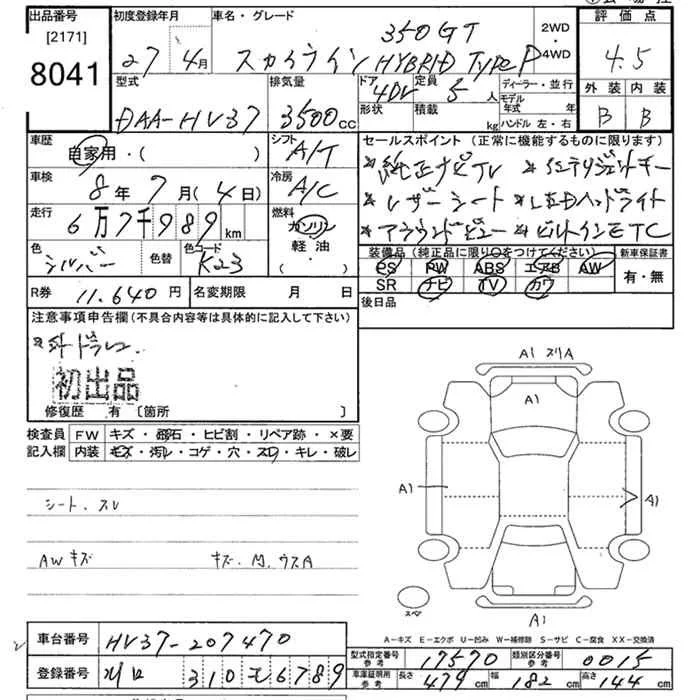 出品番号
[2171]
8041
初度登録年月
27年 4月
車名・グレード
スカイライン 350GT HYBRID TypeP
2WD
4WD
評価点
4.5
外装 内装
B B
型式
DAA-HV37
排気量
3500cc
ドア 4DV
定員 5人
形状
積載 kg
ディーラー・並行
モデル年式 年
ハンドル 左・右
車歴
自家用・( )
シフト
A/T
車検
8年7月(4日)
冷房
A/C
走行
6万7千989km
燃料
ガソリン
軽油・
( ・ )
色
シルバー
色替
色コード
K23
セールスポイント(正常に機能するものに限ります)
*純正ナビTV *インテリジェントキー
*レザーシート *LEDヘッドライト
*アラウンドビュー *ビルトインETC
装備品(純正品に限り○をつけてください)
PS PW ABS エアB AW
SR ナビ TV カワ
新車保証書
有・無
R券 11.640円
名変期限 月 日
後日品
注意事項申告欄(不具合内容等は具体的に記入して下さい)
*外ドラレコ
初出品
修復歴 有 〔箇所 〕
検査員記入欄
FW キズ・飛石・ヒビ割・リペア跡・×要
内装 キズ・汚レ・コゲ・穴・スレ・キレ・破レ
シート、スレ
AWキズ
キズ・凹、ウスA
A1 スリA
A1
A1
A1
A1
スペア
A-キズ E-エクボ U-凹み W-補修跡 S-サビ C-腐食 XX-交換済
車台番号
HV37-207470
登録番号
310 も 6789
型式指定番号参考 17570
類別区分番号参考 0015
車庫証明用参考
長さ 479cm
幅 182cm
高さ 144cm